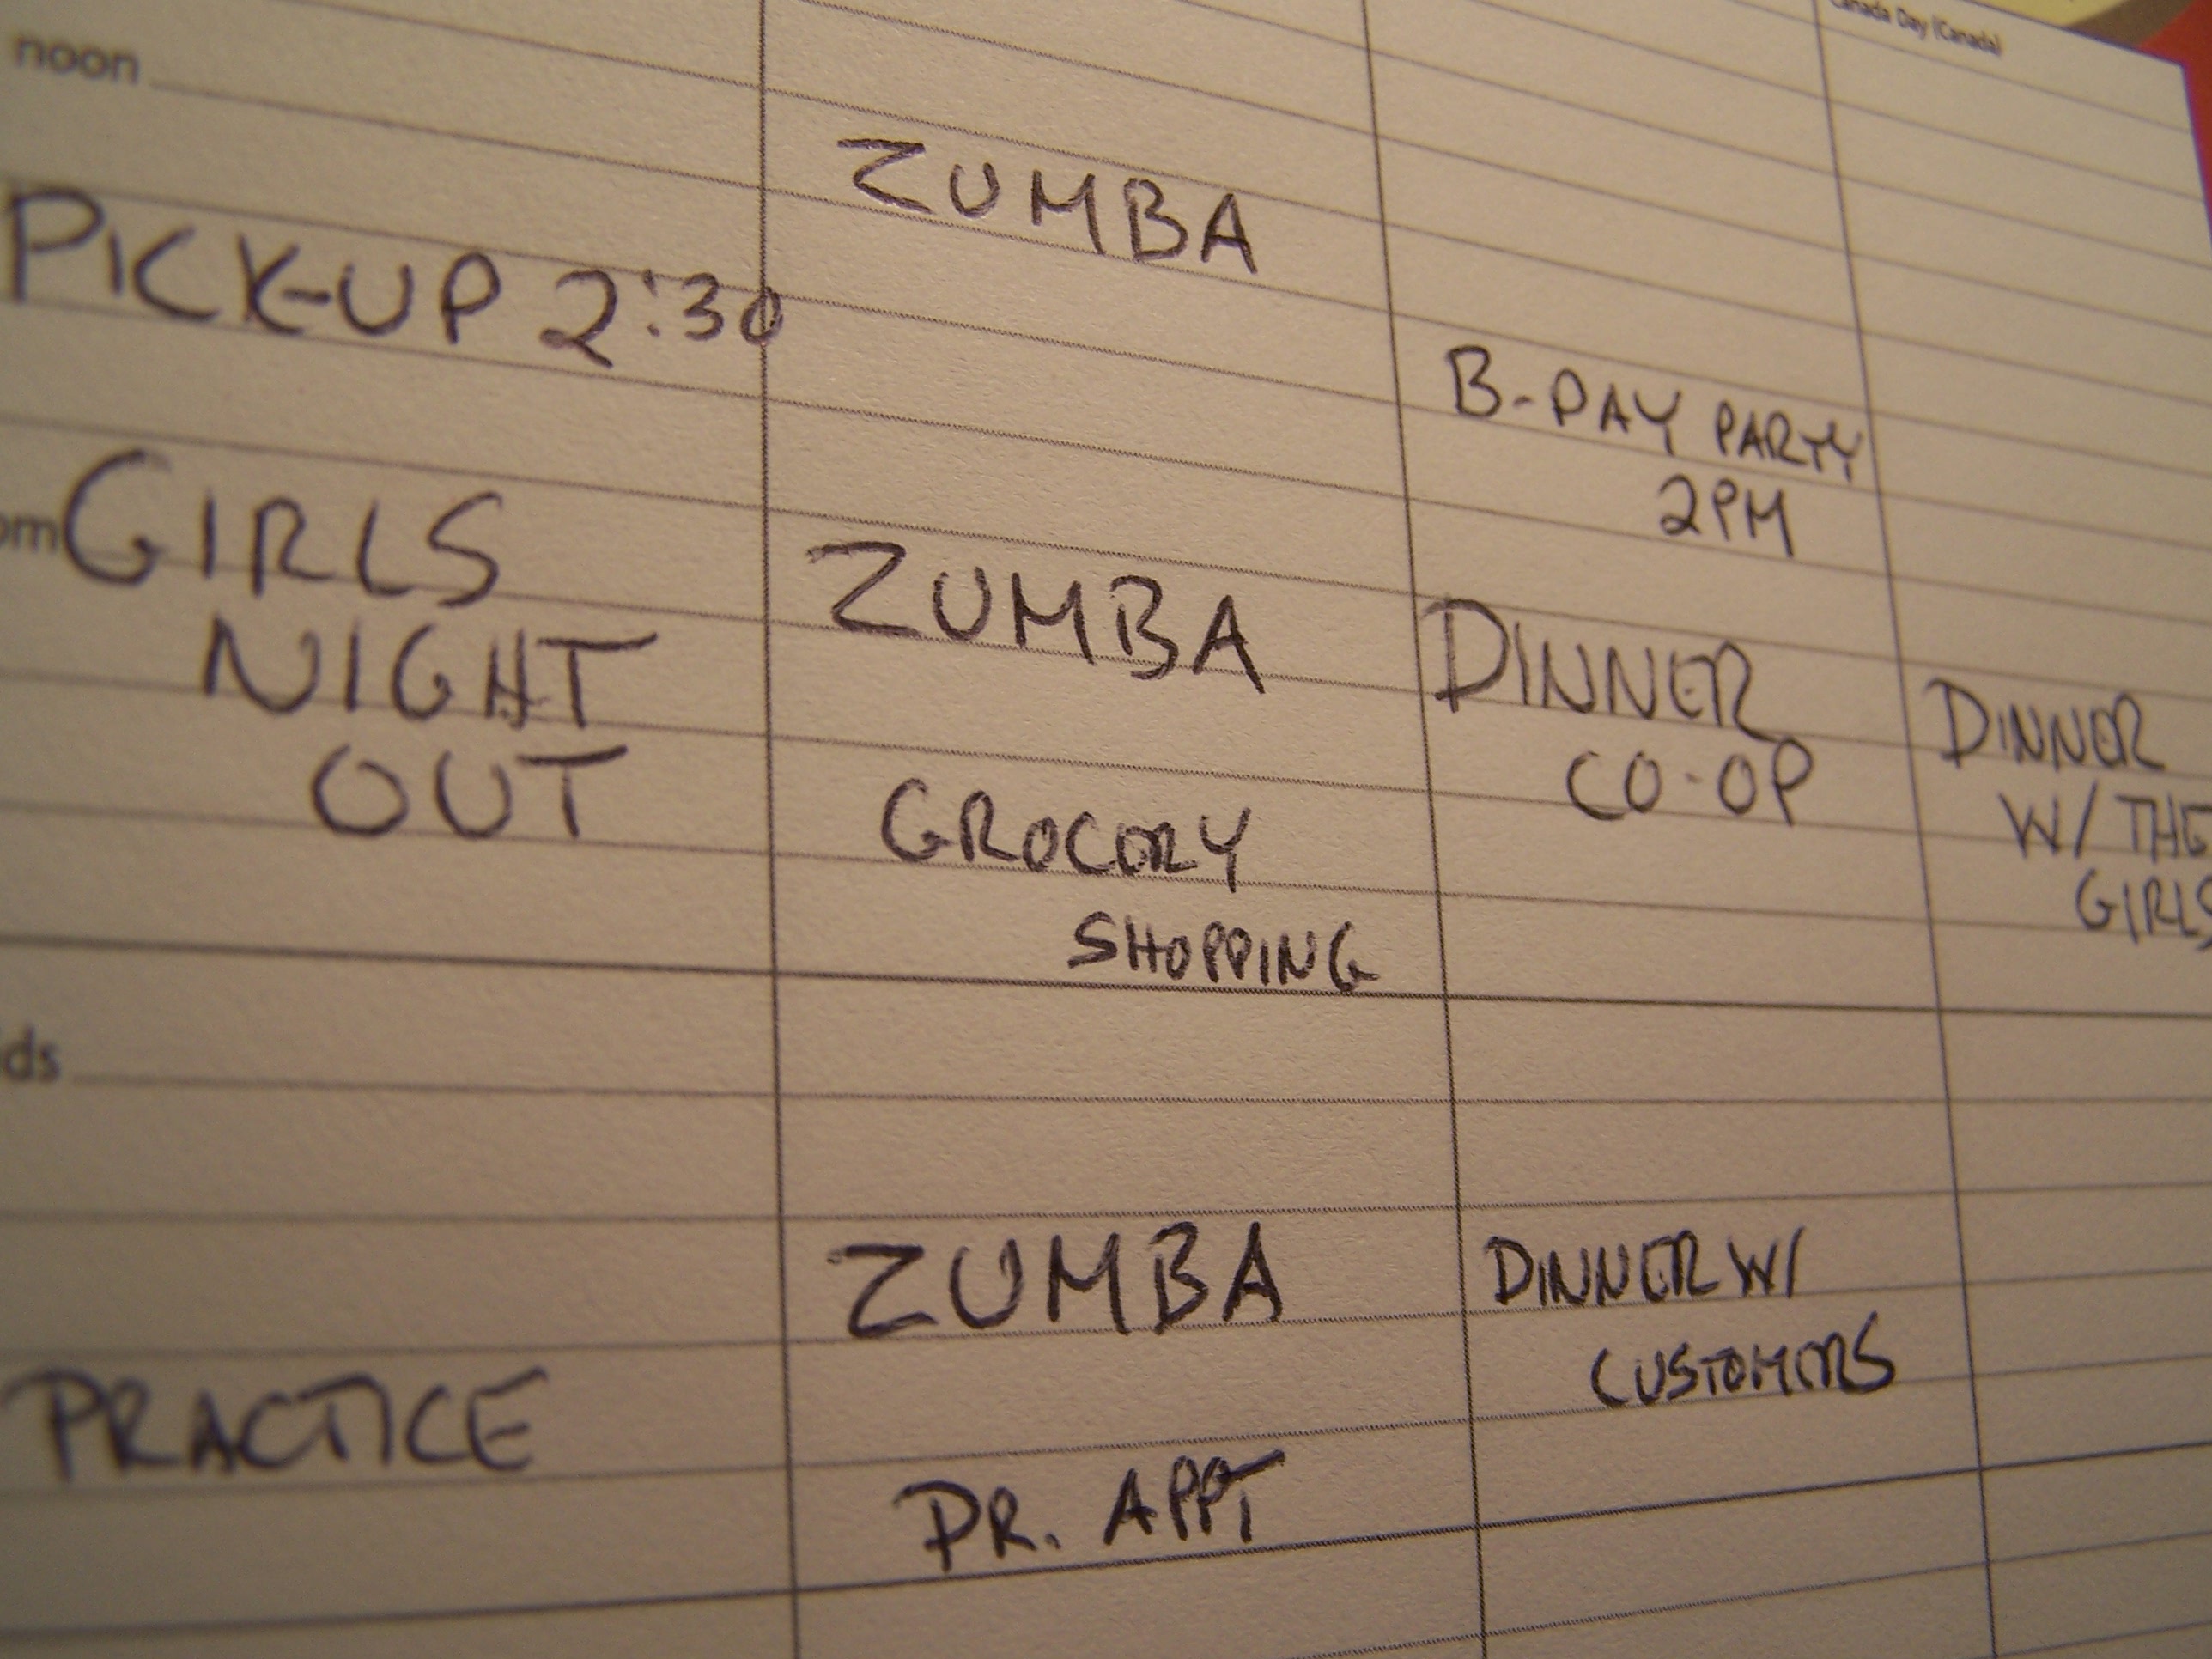 Canada Day (Canada)
noon
PICK-UP 2:30
GIRLS
NIGHT
OUT
PRACTICE
ZUMBA
ZUMBA
GROCERY
SHOPPING
ZUMBA
DR. APPT
B-DAY PARTY
2PM
DINNER
CO-OP
DINNER W/
CUSTOMERS
DINNER
W/ THE
GIRLS